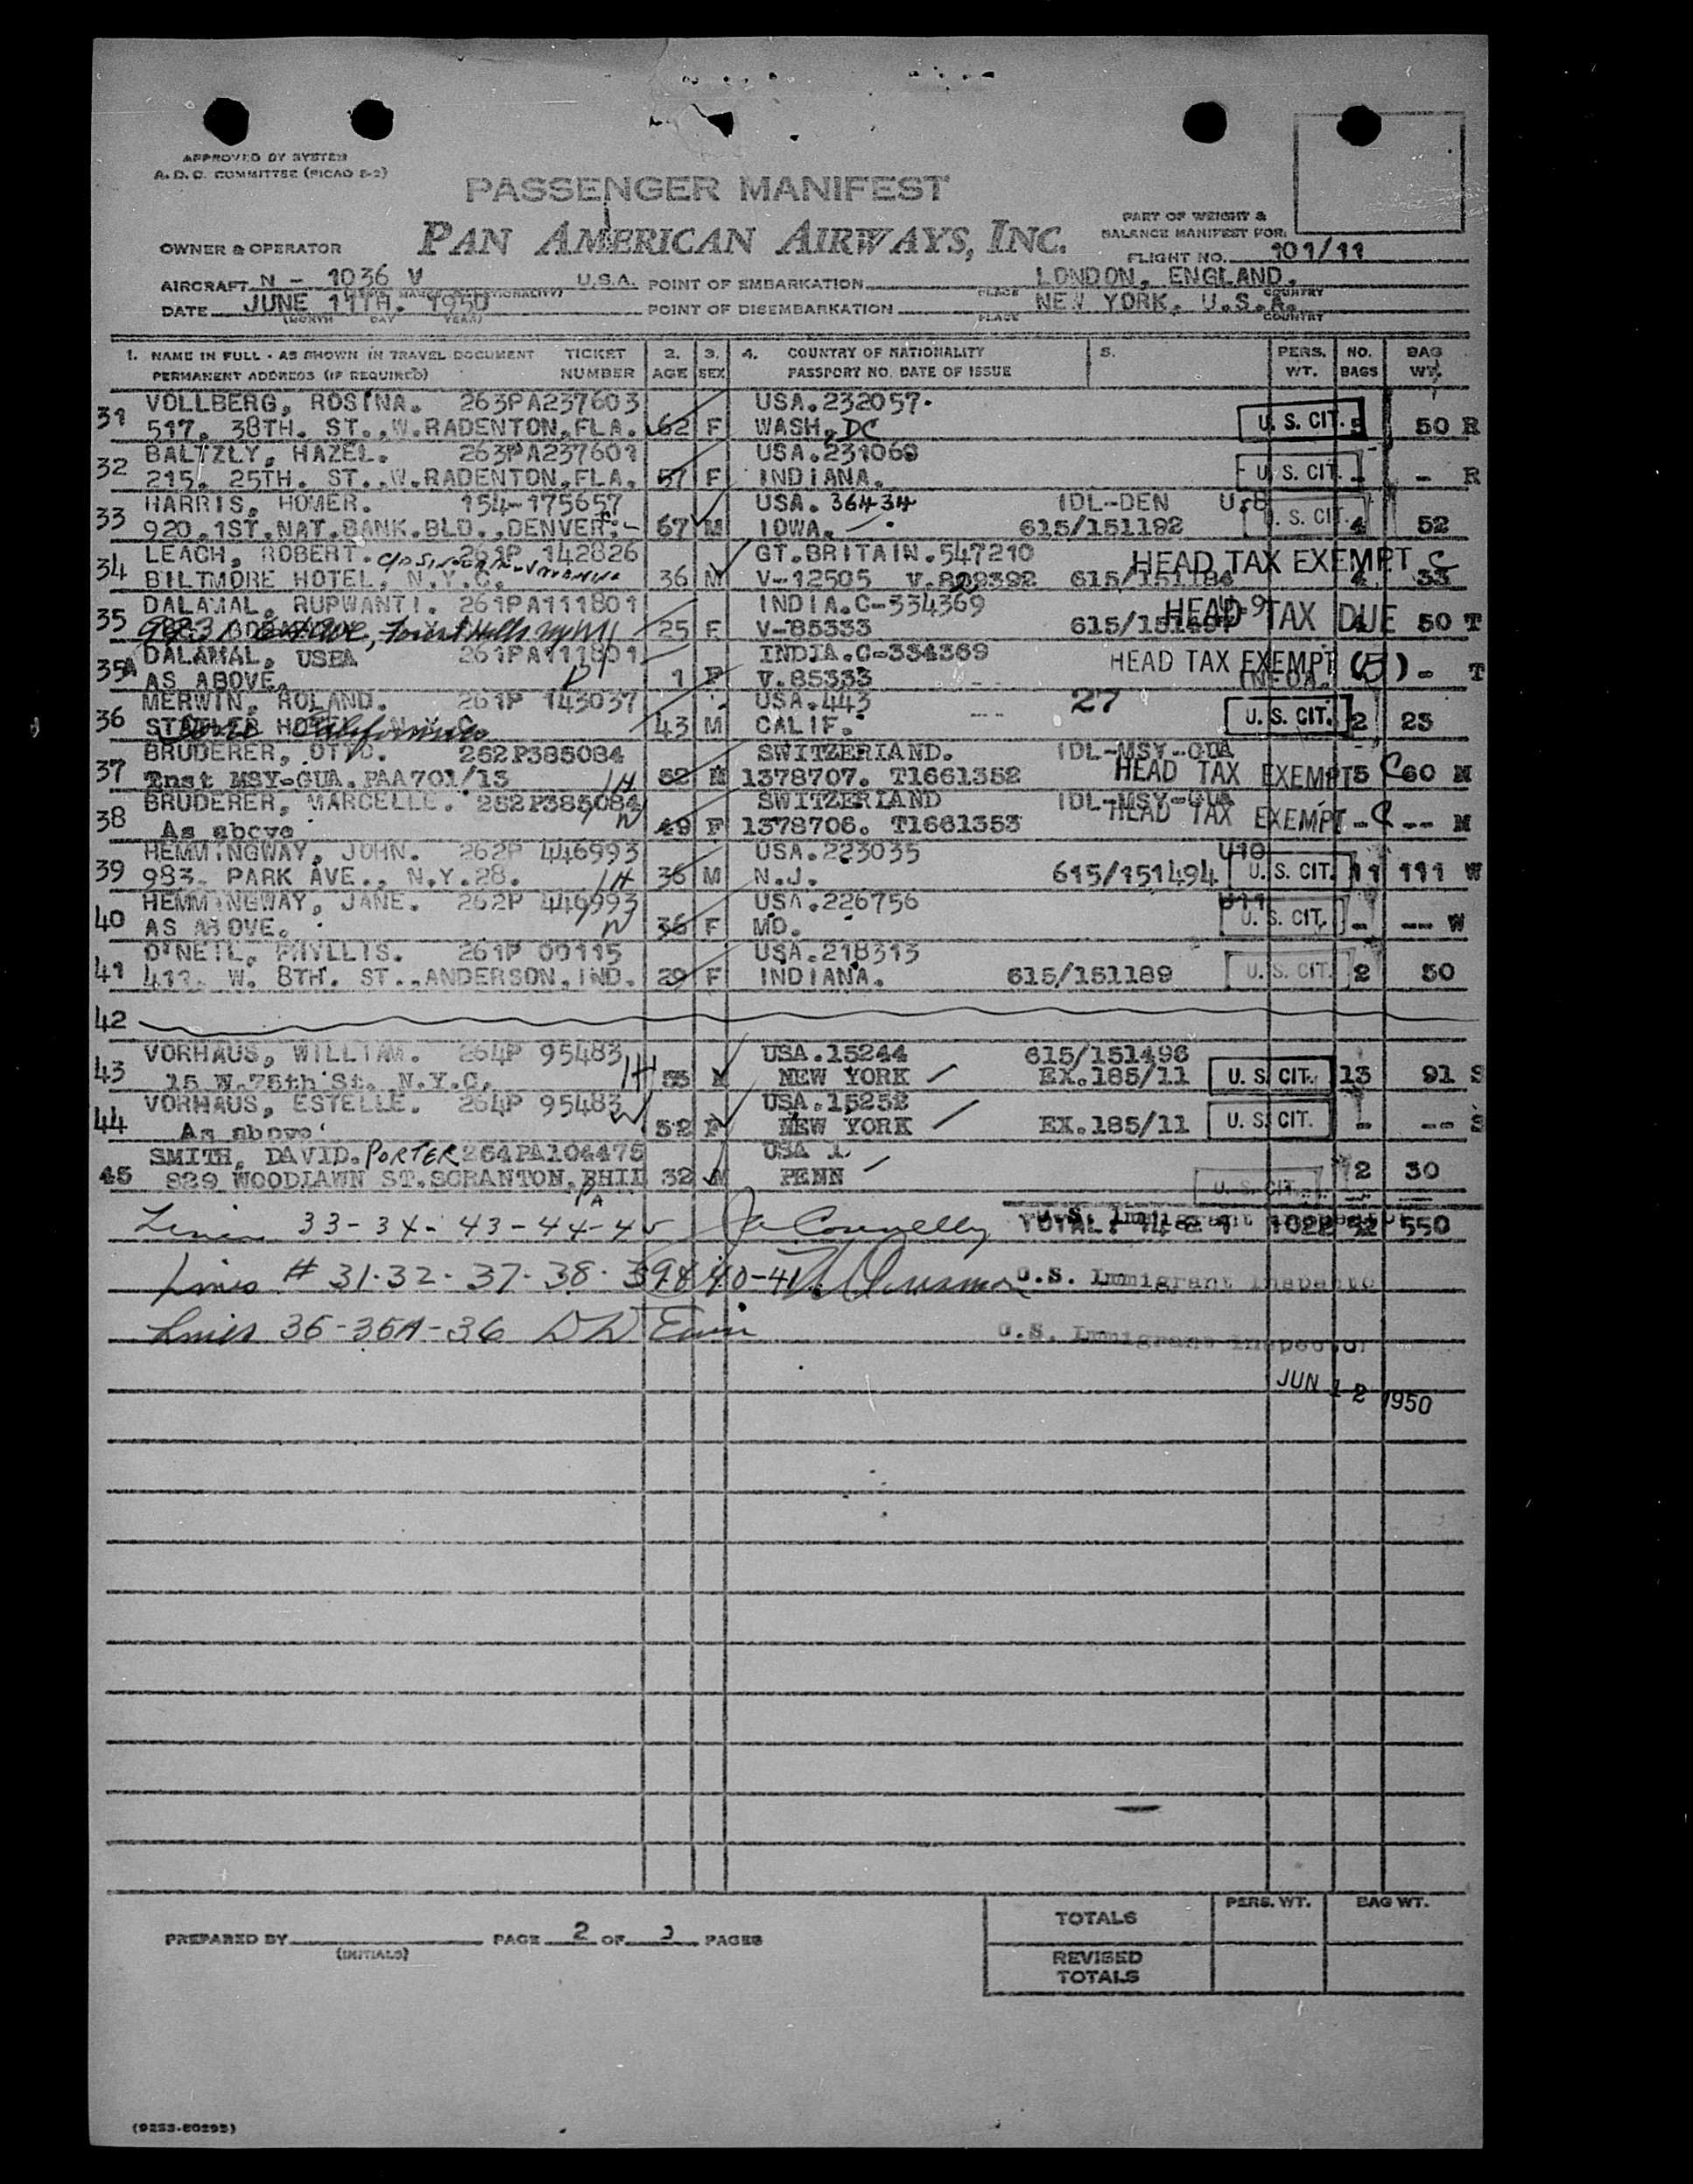 APPROVED BY SYSTEM
A.D.C. COMMITTEE (PICAO S-2)
PASSENGER MANIFEST
PAN AMERICAN AIRWAYS, INC.
PART OF WEIGHT &
BALANCE MANIFEST FOR:
OWNER & OPERATOR
FLIGHT NO. 101/11
AIRCRAFT N - 1036 V U.S.A. POINT OF EMBARKATION LONDON, ENGLAND.
PLACE COUNTRY
DATE JUNE 11TH. 1950 POINT OF DISEMBARKATION NEW YORK, U.S.A.
(MONTH DAY YEAR) PLACE COUNTRY
1. NAME IN FULL - AS SHOWN IN TRAVEL DOCUMENT TICKET 2. 3. 4. COUNTRY OF NATIONALITY 5. PERS. NO. BAG
PERMANENT ADDRESS (IF REQUIRED) NUMBER AGE SEX PASSPORT NO. DATE OF ISSUE WT. BAGS WT.
VOLLBERG, ROSINA. 263PA237603 USA.232057.
31 517. 38TH. ST.,W.RADENTON,FLA. 62 F WASH, DC U.S. CIT. 5 50 R
BALTZLY, HAZEL. 263PA237601 USA.231068
32 215. 25TH. ST.,W.RADENTON,FLA. 57 F INDIANA. U.S. CIT. - - R
HARRIS, HOMER. 154-175657 USA. 36434 IDL-DEN U-8
33 920.1ST.NAT.BANK.BLD.,DENVER. 67 M IOWA. 615/151192 U.S. CIT. 4 52
LEACH, ROBERT. 261P 142826 GT.BRITAIN.547210 HEAD TAX EXEMPT C
34 BILTMORE HOTEL, N.Y.C. 36 M V-12505 615/151184 4 33
DALAMAL, RUPWANTI. 261PA111801 INDIA.C-334369 HEAD TAX DUE
35 Forest Hills 25 F V-85333 50 T
DALAMAL, USHA 261PA111801 INDIA.C-334369 HEAD TAX EXEMPT (5)
35A AS ABOVE. 1 F V.85333 - T
MERWIN, ROLAND. 261P 143037 USA.443 27
36 STATLER HOTEL, N.Y.C. California 43 M CALIF. U.S. CIT. 2 23
BRUDERER, OTTO. 262P385084 SWITZERLAND. IDL-MSY-GUA
37 Tnst MSY-GUA.PAA701/13 1H 52 M 1378707. T1661352 HEAD TAX EXEMPT 5 C 60 M
BRUDERER, MARCELLE. 262P385084 SWITZERLAND IDL-MSY-GUA
38 As above W 49 F 1378706. T1661353 HEAD TAX EXEMPT - C -- M
HEMMINGWAY, JOHN. 262P 446993 USA.223035 U10
39 983. PARK AVE., N.Y.28. 1H 36 M N.J. 615/151494 U.S. CIT. 11 111 W
HEMMINGWAY, JANE. 262P 446993 USA.226756 U11
40 AS ABOVE. W 36 F MD. U.S. CIT. - --- W
O'NEIL, PHYLLIS. 261P 00115 USA.218313
41 411. W. 8TH. ST.,ANDERSON,IND. 29 F INDIANA. 615/151189 U.S. CIT. 2 50
42
VORHAUS, WILLIAM. 264P 95483 USA.15244 615/151496
43 15 W.75th St. N.Y.C. 1H 55 M NEW YORK EX.185/11 U.S. CIT. 13 91 S
VORHAUS, ESTELLE. 264P 95483 USA.15252
44 As above W 52 F NEW YORK EX.185/11 U.S. CIT. - --- S
SMITH, DAVID. PORTER 264PA106475 USA 1
45 829 WOODLAWN ST.SCRANTON,PHIL PA 32 M PENN U.S. CIT. 2 30
Lines 33-34-43-44-45 Connelly U.S. Immigrant Inspector TOTAL: 14 & 1 1022 52 550
Lines # 31-32-37-38-39 & 40-41 U.S. Immigrant Inspector
Lines 35-35A-36 U.S. Immigrant Inspector
JUN 12 1950
PERS. WT. BAG WT.
TOTALS
PREPARED BY PAGE 2 OF 2 PAGES
(INITIALS)
REVISED
TOTALS
(9253-50295)